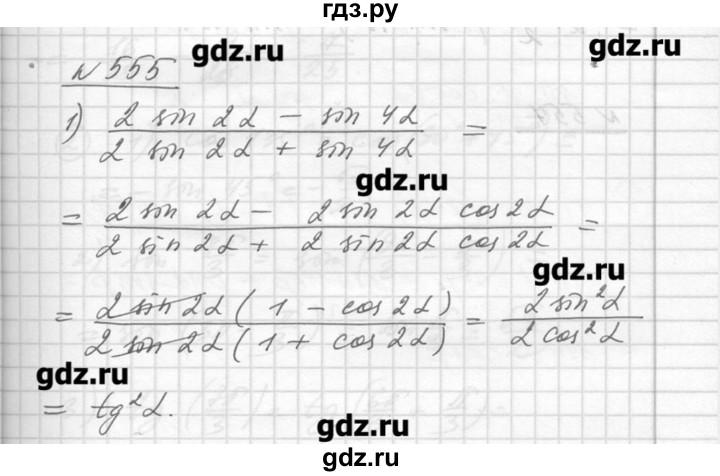 гдз.ру
gdz.ru
№ 555
1) (2 sin 2α − sin 4α)/(2 sin 2α + sin 4α) =
gdz.ru
= (2 sin 2α − 2 sin 2α cos 2α)/(2 sin 2α + 2 sin 2α cos 2α) =
gdz.ru
= (2 sin 2α (1 − cos 2α))/(2 sin 2α (1 + cos 2α)) = (2 sin²α)/(2 cos²α)
gdz.ru
= tg²α.
gdz.ru
gdz.ru